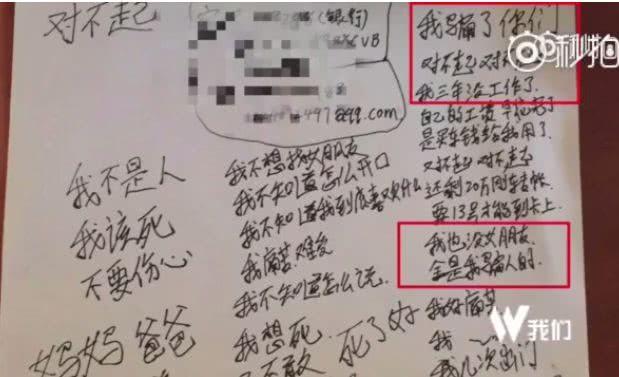 对不起
(银行)
497@qq.com
我不是人
我该死
不要伤心
妈妈 爸爸
我不想找女朋友
我不知道怎么开口
我不知道我到底喜欢什么
我痛苦 难受
我不知道怎么说
我想死
不敢 死了好
我骗了你们
对不起 对
我三年没工作了
自己的工资早花完了
是买车钱给我用了
对不起 对不起
还剩20万周转帐
要13号才能到卡上
我也没女朋友
全是我骗人的
我好痛苦
我
我几次出门
秒拍
我们